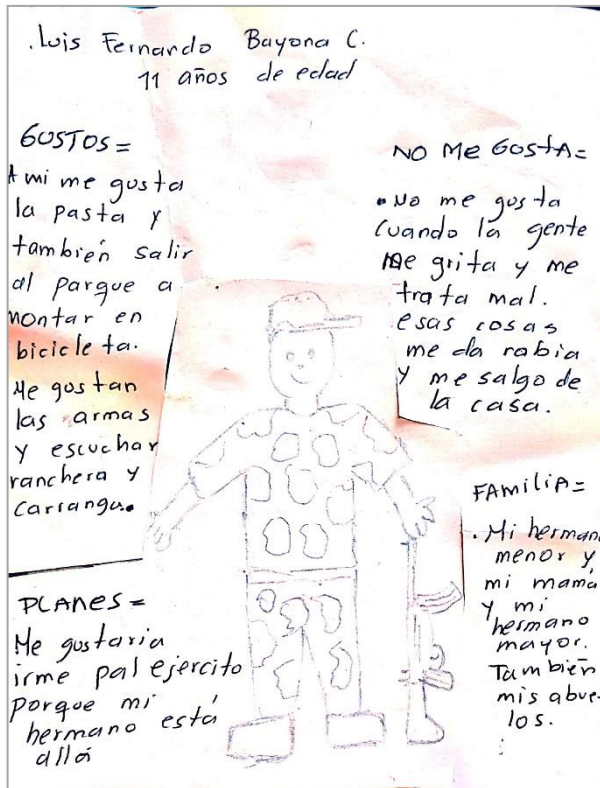 .Luis Fernando Bayona C.
11 años de edad
GUSTOS=
A mi me gusta
la pasta y
también salir
al parque a
montar en
bicicleta.
Me gustan
las armas
y escuchar
ranchera y
Carranga.
NO Me GostA=
.No me gusta
Cuando la gente
me grita y me
trata mal.
esas cosas
me da rabia
y me salgo de
la casa.
FAMiliA=
.Mi hermano
menor y
mi mamá
y mi
hermano
mayor.
También
mis abue-
los.
PLANES=
Me gustaria
irme pal ejercito
porque mi
hermano está
allá